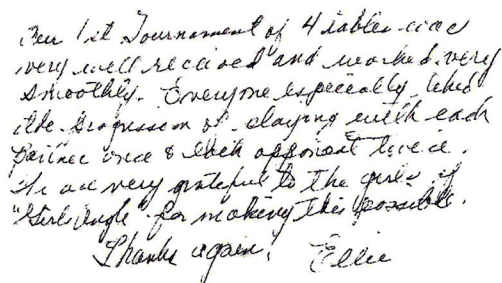 Our 1st Tournament of 4 tables was
very well received and worked very
smoothly. Everyone especially liked
the progression of playing with each
partner once & each opponent twice.
We are very grateful to the girls of
"Girls' Angle" for making this possible.
Thanks again, Ellie